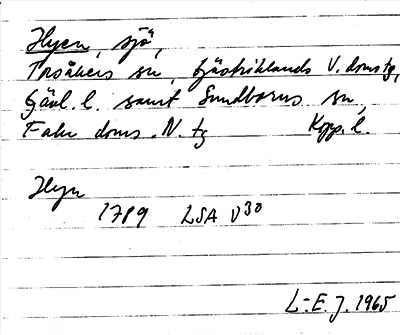 Hyen, sjö,
Torsåkers sn, Gästriklands V. domstg,
Gävl. l. samt Sundborns sn,
Falu doms. N. tg Kopp. l.
Hyn
1789 LSA V30
L-E. J. 1965